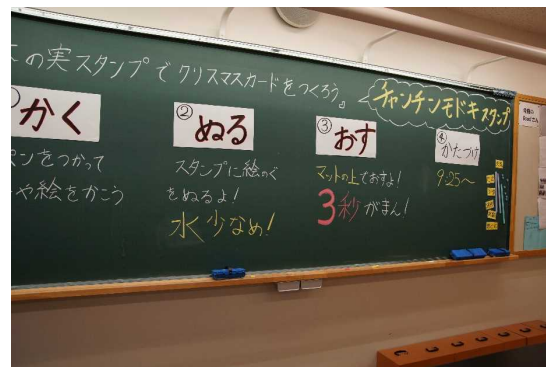 の実スタンプでクリスマスカードをつくろう。
チャンチンモドキスタンプ
かく
ンをつかって
や絵をかこう
②
ぬる
スタンプに絵のぐ
をぬるよ！
水少なめ！
③
おす
マットの上でおすよ！
3秒がまん！
④
かたづけ
9:25〜